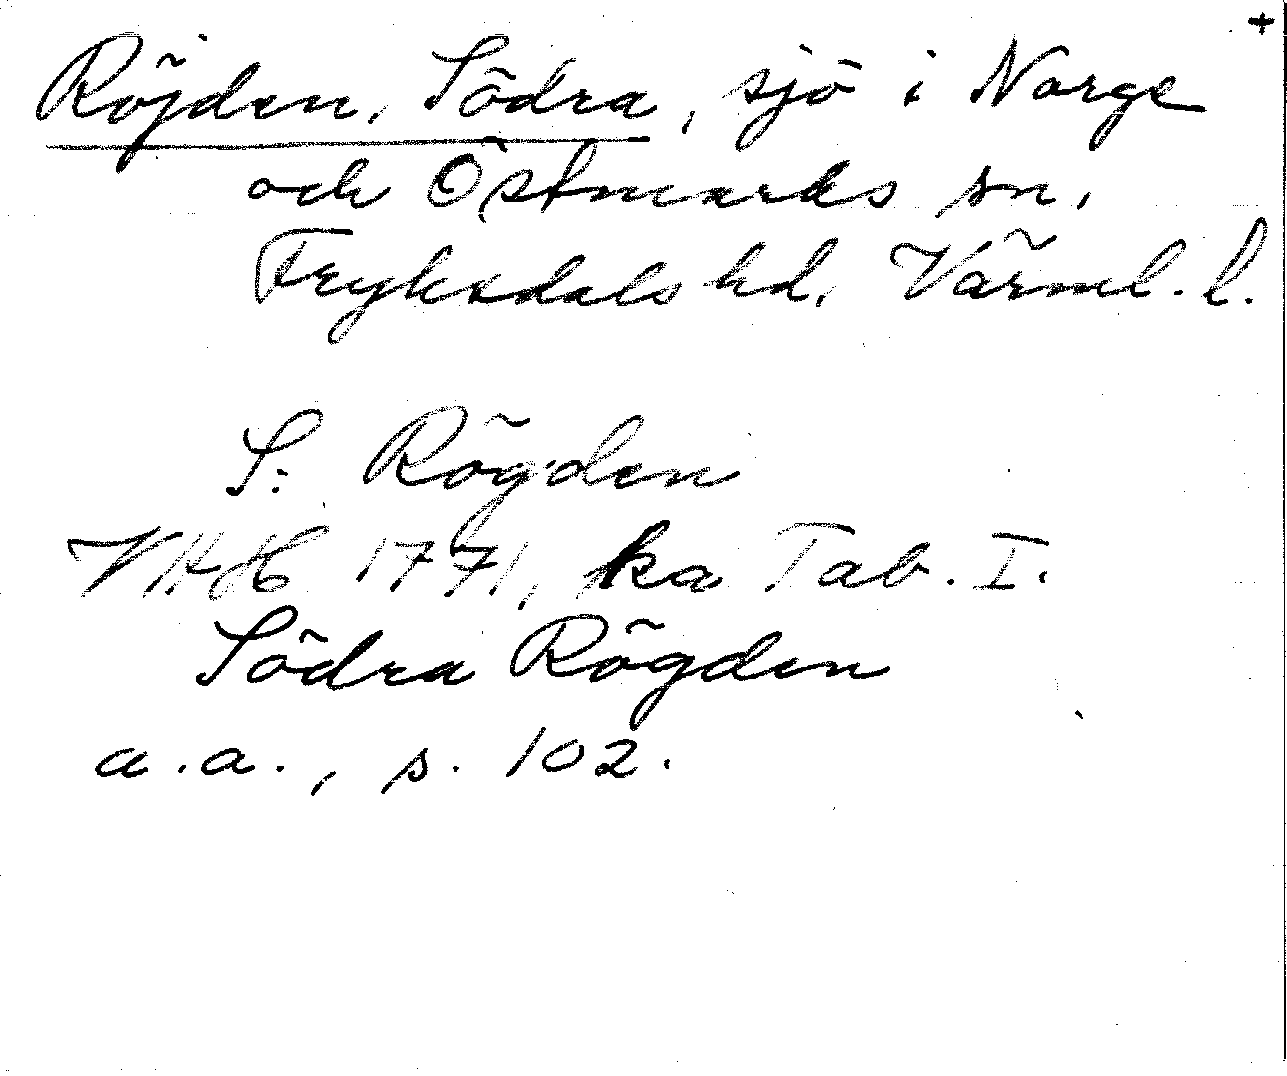 +
Röjden, Södra, sjö i Norge
och Östmarks sn,
Fryksdals hd, Värml. l.
S: Rögden
VHH 1771, ka Tab. I.
Södra Rögden
a.a., s. 102.